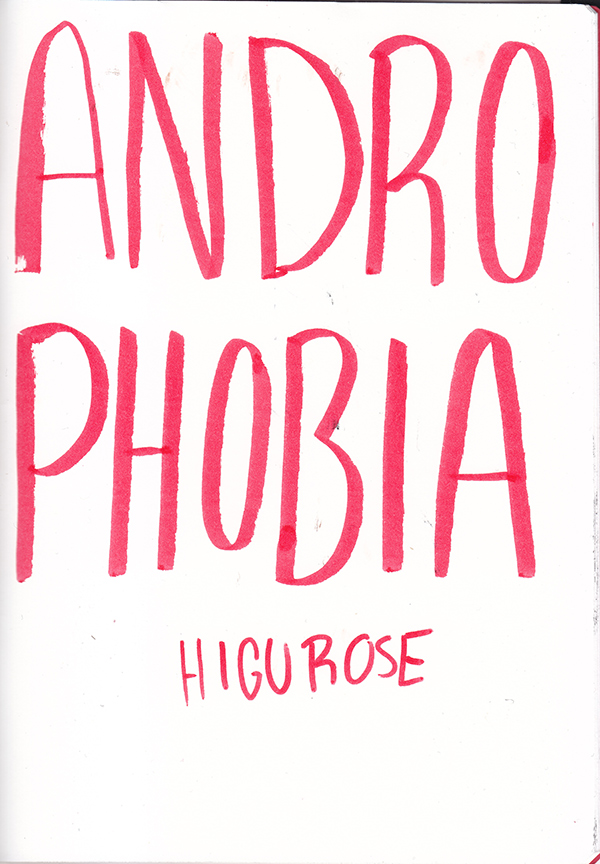 ANDRO
PHOBIA
HIGUROSE